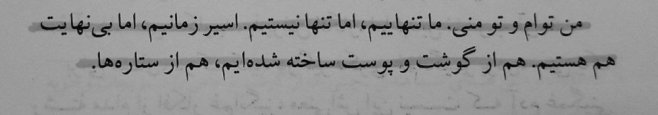 من توام و تو منی. ما تنهاییم، اما تنها نیستیم. اسیر زمانیم، اما بی‌نهایت
هم هستیم. هم از گوشت و پوست ساخته شده‌ایم، هم از ستاره‌ها.